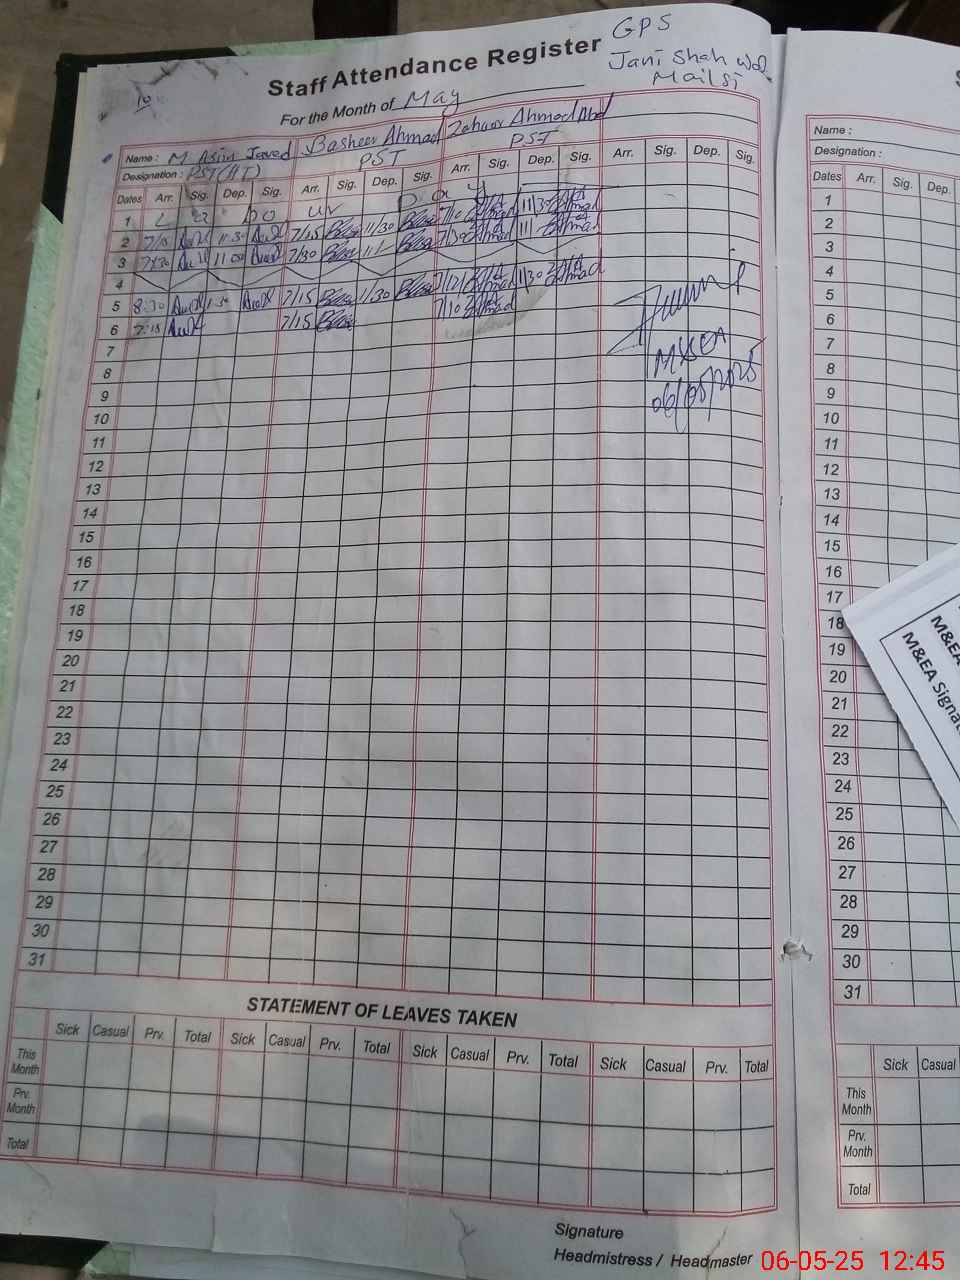 GPS
Jani Shah Wal
Mailsi
Staff Attendance Register
For the Month of May
Name : M Asim Javed Basheer Ahmad Zahoor Ahmad Abd
Designation : PST(HT) PST PST
Dates Arr. Sig. Dep. Sig. Arr. Sig. Dep. Sig. Arr. Sig. Dep. Sig. Arr. Sig. Dep. Sig.
1 L a bo ur D a y
2 7/15 11/30 7/15 11/30 7/10 11/30
3 7/30 11 00 7/30 11/ 7/30 11/
4
5 8:30 1:30 7/15 1/30 7/12 1/30
6 7:15 7/15 7/10
7
8
9
10
11
12
13
14
15
16
17
18
19
20
21
22
23
24
25
26
27
28
29
30
31
M&EA
06/05/2025
STATEMENT OF LEAVES TAKEN
Sick Casual Prv. Total Sick Casual Prv. Total Sick Casual Prv. Total Sick Casual Prv. Total
This Month
Prv. Month
Total
Signature
Headmistress / Headmaster
Name :
Designation :
Dates Arr. Sig. Dep.
1
2
3
4
5
6
7
8
9
10
11
12
13
14
15
16
17
18
19
20
21
22
23
24
25
26
27
28
29
30
31
M&EA
M&EA Signat
Sick Casual
This Month
Prv. Month
Total
06-05-25 12:45